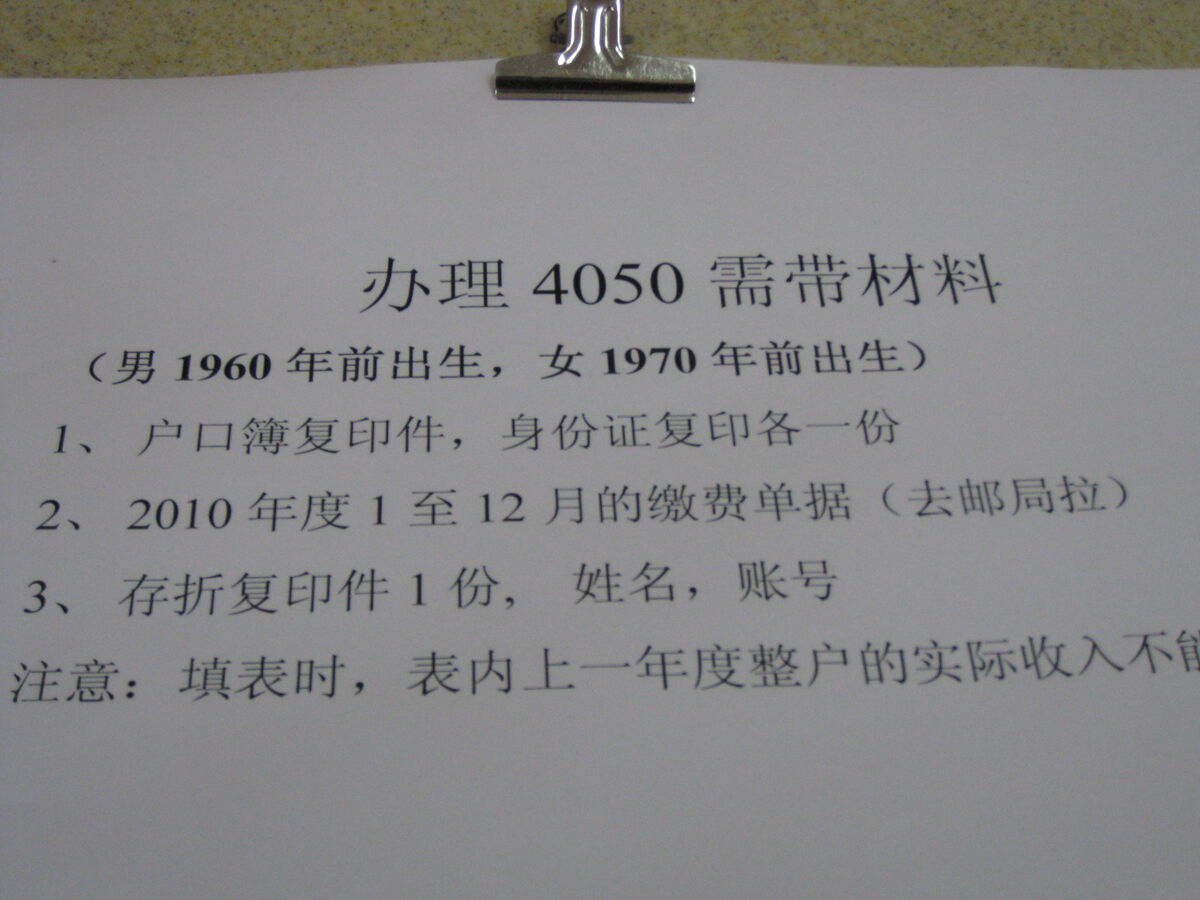 办理 4050 需带材料
（男 1960 年前出生，女 1970 年前出生）
1、 户口簿复印件，身份证复印各一份
2、 2010 年度 1 至 12 月的缴费单据（去邮局拉）
3、 存折复印件 1 份， 姓名，账号
注意：填表时，表内上一年度整户的实际收入不